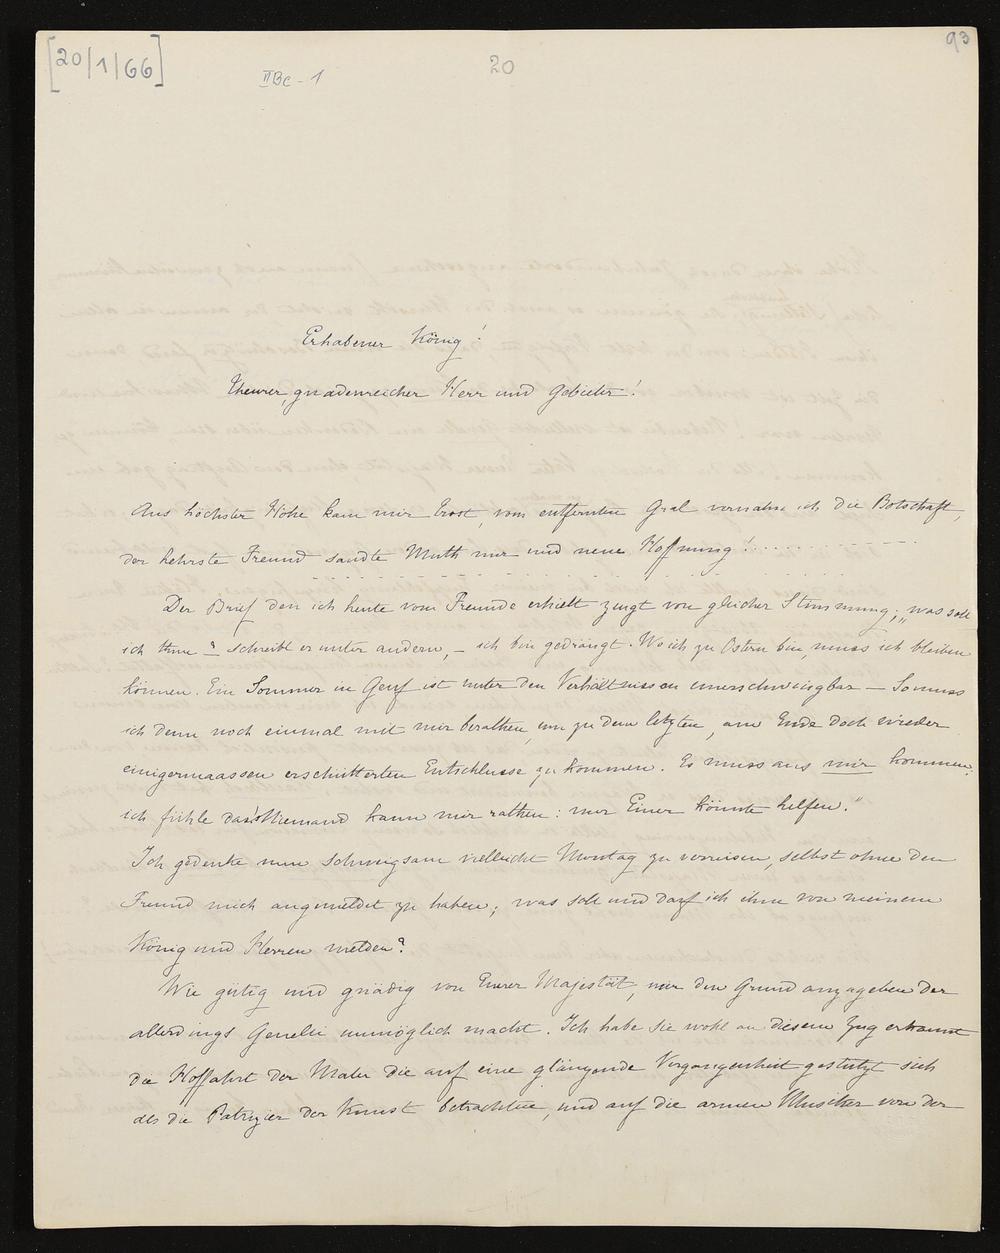 [20/1/66]
IIBc - 1
20
93
Erhabener König!
Theurer, gnadenreicher Herr und Gebieter!
Aus höchster Höhe kam mir Trost, vom entfernten Gral vernahm ich die Botschaft,
der hehrste Freund sandte Muth mir und neue Hoffnung! . . . . . . . . . .
. . . . . . . . . . . . . . . .
Der Brief den ich heute vom Freunde erhielt zeugt von gleicher Stimmung; „was soll
ich thun? schreibt er unter andern, – ich bin gedrängt. Wo ich zu Ostern bin, muss ich bleiben
können. Ein Sommer in Genf ist unter den Verhältnissen unerschwingbar – So muss
ich denn noch einmal mit mir berathen, um zu dem letzten, am Ende doch wieder
einigermaassen erschütterten Entschlusse zu kommen. Es muss aus mir kommen,
ich fühle dass Niemand kann mir rathen: nur Einer könnte helfen."
Ich gedenke nun schweigsam vielleicht Montag zu verreisen, selbst ohne dem
Freund mich angemeldet zu haben; was soll und darf ich ihm von meinem
König und Herren melden?
Wie gütig und gnädig von Eurer Majestät, mir den Grund anzugeben der
allerdings Genelli unmöglich macht. Ich habe sie wohl an diesem Zug erkannt
die Hoffahrt der Maler die auf eine glänzende Vergangenheit gestützt sich
als die Patrizier der Kunst betrachten, und auf die armen Musiker von der